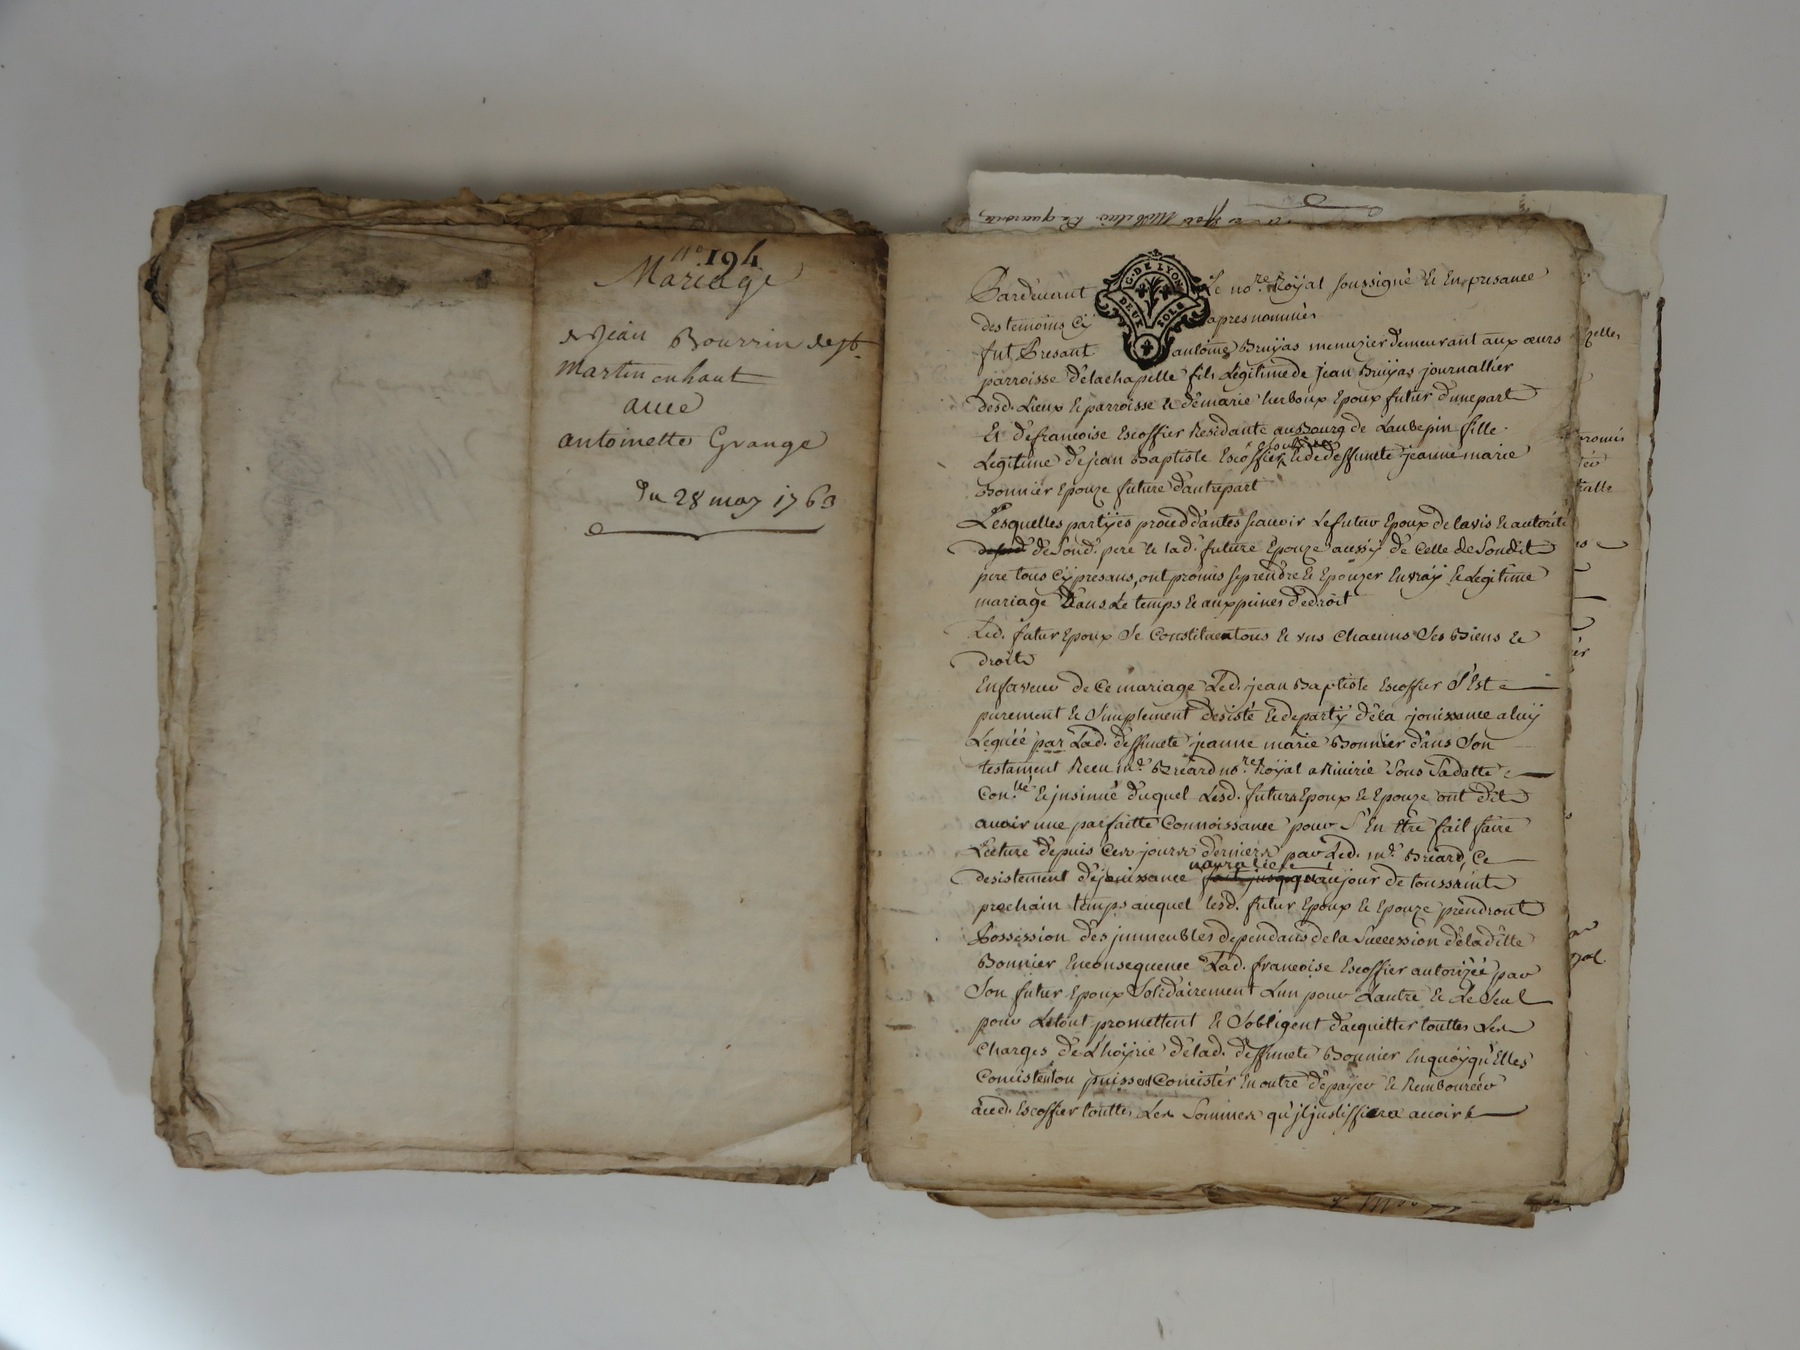 n.o 194
Mariage
de Jean Bourrin de st.
Martin en haut
avec
antoinette Grange
du 28 may 1763
Pardevant Le no.re Royal soussigné Et En presance
des temoins cy apres nommés
G. DE LYON
DEUX SOLS
fut Presant antoine Bruÿas menuzier demeurant aux oeurs
parroisse de la chapelle fils Legitime de jean Bruÿas journallier
desd. Lieux Et parroisse Et de marie herboux Epoux futur d'unepart
Et de francoise Escoffier Residante au Bourg de Laubepin fille
Legitime de jean Baptiste Escoffier Et de deffuncte jeanne marie
Bonnier Epouze futture d'autrepart
Lesquelles partÿes proceddantes scavoir Le futur Epoux de lavis Et autorité
de Sond. pere Et lad. future Epouze aussÿ de celle de Sondit
pere tous cÿ presans, ont promis se prendre Et Epouzer En vraÿ Et Legitime
mariage dans Le temps Et aux peines de droit
Led. futur Epoux Se Constituent tous Et uns chacuns Ses Biens Et
droits
En faveur de ce mariage Led. jean Baptiste Escoffier S'Est
purement Et Simplement desisté Et departÿ de la jouissance a luÿ
Leguéé par Lad. deffuncte jeanne marie Bonnier dans Son
testament Recu m.e Bréard no.re Royal a Riverie Sous Sa datte
Con.llé Et insinué duquel Lesd. futurs Epoux Et Epouze ont dit
avoir une parfaitte Connoissance pour S'En Etre fait faire
Lecture depuis ces jours derniers par Led. m.e Bréard, Ce
desistement de jouissance n'aura lieu fait jusques au jour de toussaint
prochain temps auquel lesd. futur Epoux Et Epouze prendront
Possession des jmmeubles dependans de la Succession de la ditte
Bonnier En consequence Lad. francoise Escoffier autorizéé par
Son futur Epoux Solidairement L'un pour L'autre Et Le Seul
pour Letout promettent Et S'obligent d'acquitter touttes Les
Charges de L'hoÿrie de lad. deffuncte Bonnier En quoÿ qu'Elles
Concistent ou puissent Concister En outre de paÿer Et Rembourcér
aud. Escoffier touttes Les Sommes qu'jl justiffiera avoir